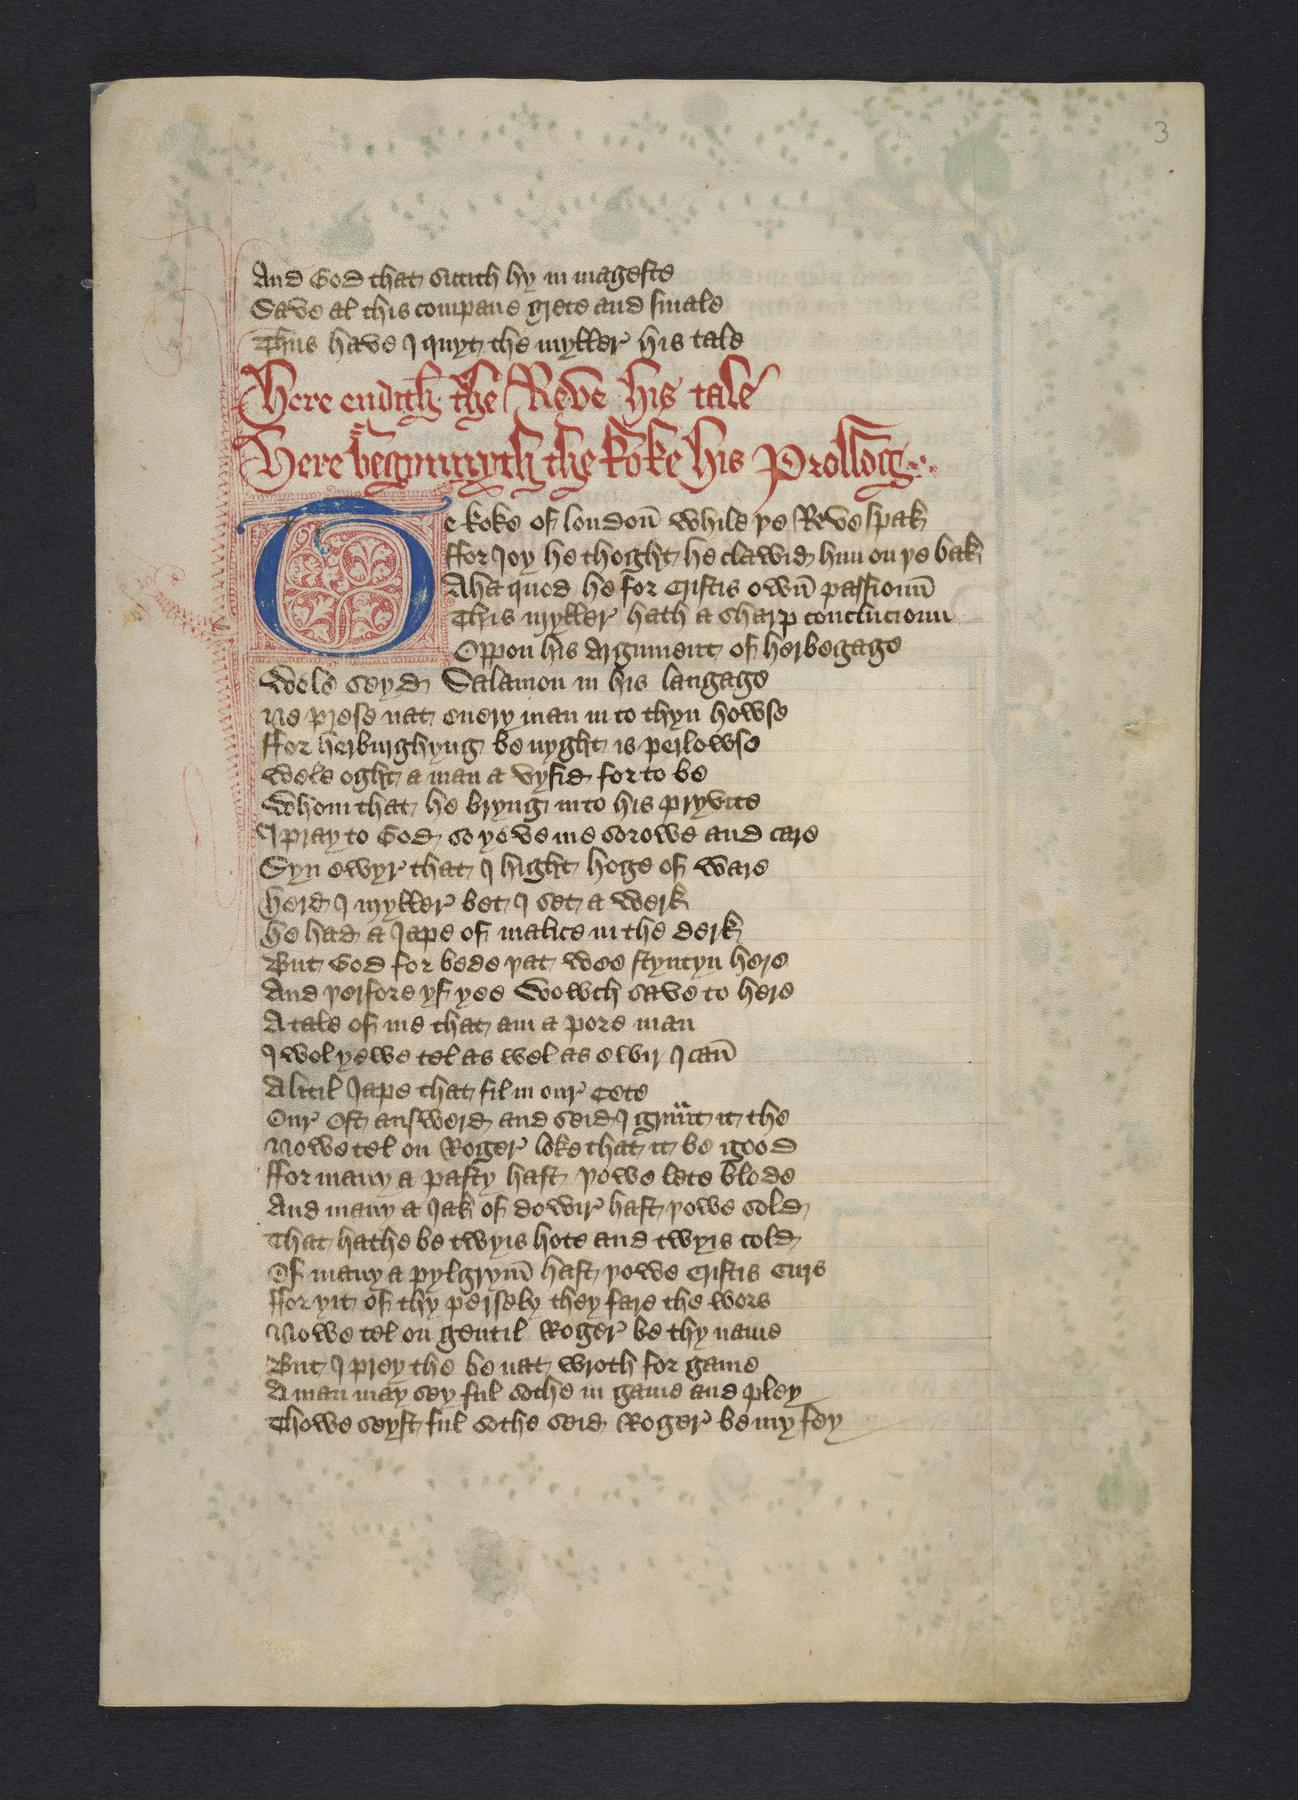 3
And God that sittith hy in mageste
Save al this compane grete and smale
Thus have I quyt the myller his tale
Here endith the Reve his tale
Here begynnyth the koke his Prollog
Te koke of london while þe Reve spak
ffor Joy he thoght he clawid him on þe bak
Aha quod he for Cristis own passioun
This myller hath a sharp conclucioun
Oppon his argument of herbegage
Wele seyd Salamon in his langage
Ne prese nat euery man in to thyn howse
ffor herburghyng be nyght is perlowse
Wele oght a man a vysid for to be
Whom that he bryng into his pryvite
I pray to God so yeve me sorowe and care
Syn ewyr that I hight hoge of ware
Herd I myller bet I set a werk
He had a Jape of malice in the derk
But God for bede þat wee styntyn here
And þerfore yf yee Vowch save to here
A tale of me that am a pore man
I wol yewe tel as wel as ewir I can
A litil Jape that fil in our Cete
Our Ost answerd and seid I graunt it the
Nowe tel on Roger loke that it be good
ffor many a pasty hast þowe lete blode
And many a Jak of dowir hast þowe sold
That hathe be twyis hote and twyis cold
Of many a pylgrym hast þowe Cristis Curs
ffor yit of thy persely they fare the wors
Nowe tel on gentil Roger be thy name
But I prey the be nat wroth for game
A man may sey ful sothe in game and pley
Thowe seyst ful sothe seid Roger be my fey